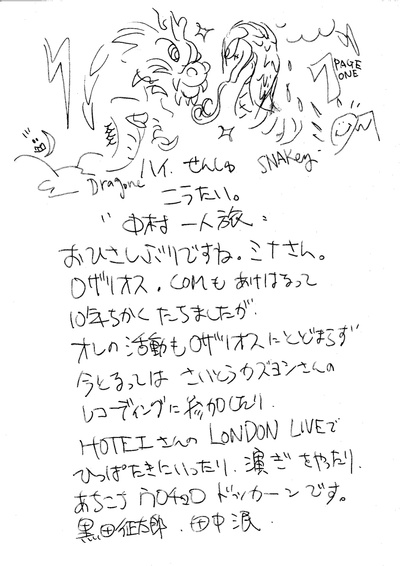 PAGE
ONE
1
Dragone
SNAKey
ハイ。せんしゅ
こうたい。
"中村 一人旅"
おひさしぶりですね。ミナさん。
ロザリオス.COMもあけはなって
10年ちかくたちましたが、
オレの活動もロザリオスにとどまらず
今となっては さいとうカズヨシさんの
レコーディングに参加したり、
HOTEIさんの LONDON LIVEで
ひっぱたきにいったり、演ぎをやったり、
あちこち ウロチョロ ドッカーンです。
黒田征太郎、田中泯、